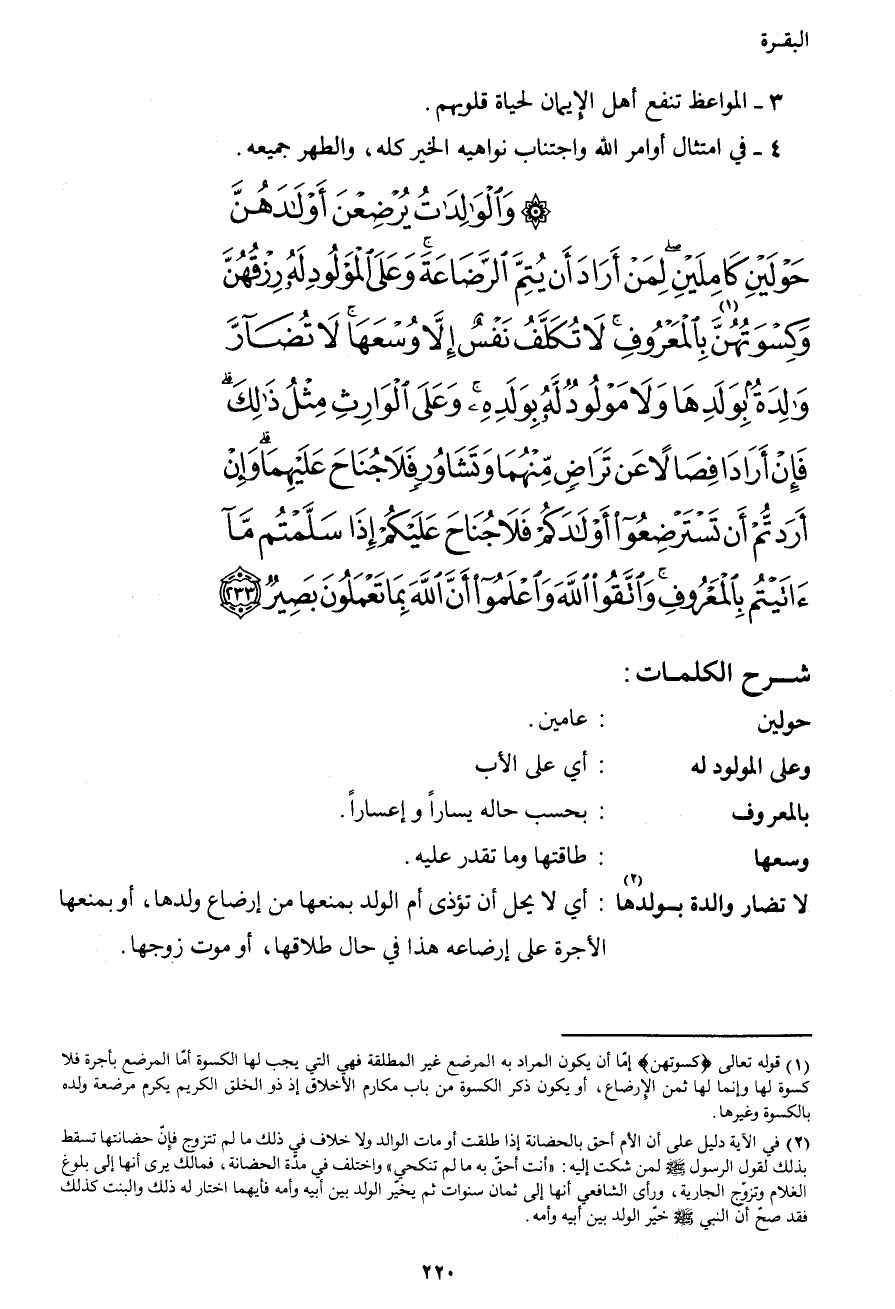 البقـرة
٣ ـ المواعظ تنفع أهل الإيمان لحياة قلوبهم .
٤ ـ في امتثال أوامر الله واجتناب نواهيه الخير كله، والطهر جميعه .
۞ وَٱلْوَٰلِدَٰتُ يُرْضِعْنَ أَوْلَـٰدَهُنَّ
حَوْلَيْنِ كَامِلَيْنِ ۖ لِمَنْ أَرَادَ أَن يُتِمَّ ٱلرَّضَاعَةَ ۚ وَعَلَى ٱلْمَوْلُودِ لَهُۥ رِزْقُهُنَّ
وَكِسْوَتُهُنَّ (١) بِٱلْمَعْرُوفِ ۚ لَا تُكَلَّفُ نَفْسٌ إِلَّا وُسْعَهَا ۚ لَا تُضَآرَّ
وَٰلِدَةٌۢ بِوَلَدِهَا وَلَا مَوْلُودٌ لَّهُۥ بِوَلَدِهِۦ ۚ وَعَلَى ٱلْوَارِثِ مِثْلُ ذَٰلِكَ ۗ
فَإِنْ أَرَادَا فِصَالًا عَن تَرَاضٍ مِّنْهُمَا وَتَشَاوُرٍ فَلَا جُنَاحَ عَلَيْهِمَا ۗ وَإِنْ
أَرَدتُّمْ أَن تَسْتَرْضِعُوٓا۟ أَوْلَـٰدَكُمْ فَلَا جُنَاحَ عَلَيْكُمْ إِذَا سَلَّمْتُم مَّآ
ءَاتَيْتُم بِٱلْمَعْرُوفِ ۗ وَٱتَّقُوا۟ ٱللَّهَ وَٱعْلَمُوٓا۟ أَنَّ ٱللَّهَ بِمَا تَعْمَلُونَ بَصِيرٌ ٢٣٣
شـــرح الكلمـات :
حولين : عامين .
وعلى المولود له : أي على الأب
بالمعروف : بحسب حاله يساراً و إعساراً .
وسعها : طاقتها وما تقدر عليه .
لا تضار والدة بـولدها (٢) : أي لا يحل أن تؤذى أم الولد بمنعها من إرضاع ولدها، أو بمنعها
الأجرة على إرضاعه هذا في حال طلاقها، أو موت زوجها .
(١) قوله تعالى ﴿كسوتهن﴾ إمّا أن يكون المراد به المرضع غير المطلقة فهي التي يجب لها الكسوة أمّا المرضع بأجرة فلا
كسوة لها وإنما لها ثمن الإرضاع، أو يكون ذكر الكسوة من باب مكارم الأخلاق إذ ذو الخلق الكريم يكرم مرضعة ولده
بالكسوة وغيرها .
(٢) في الآية دليل على أن الأم أحق بالحضانة إذا طلقت أو مات الوالد ولا خلاف في ذلك ما لم تتزوج فإنّ حضانتها تسقط
بذلك لقول الرسول ﷺ لمن شكت إليه : «أنت أحقّ به ما لم تنكحي» واختلف في مدّة الحضانة، فمالك يرى أنها إلى بلوغ
الغلام وتزوّج الجارية، ورأى الشافعي أنها إلى ثمان سنوات ثم يخيّر الولد بين أبيه وأمه فأيهما اختار له ذلك والبنت كذلك
فقد صحّ أن النبي ﷺ خيّر الولد بين أبيه وأمه .
٢٢٠